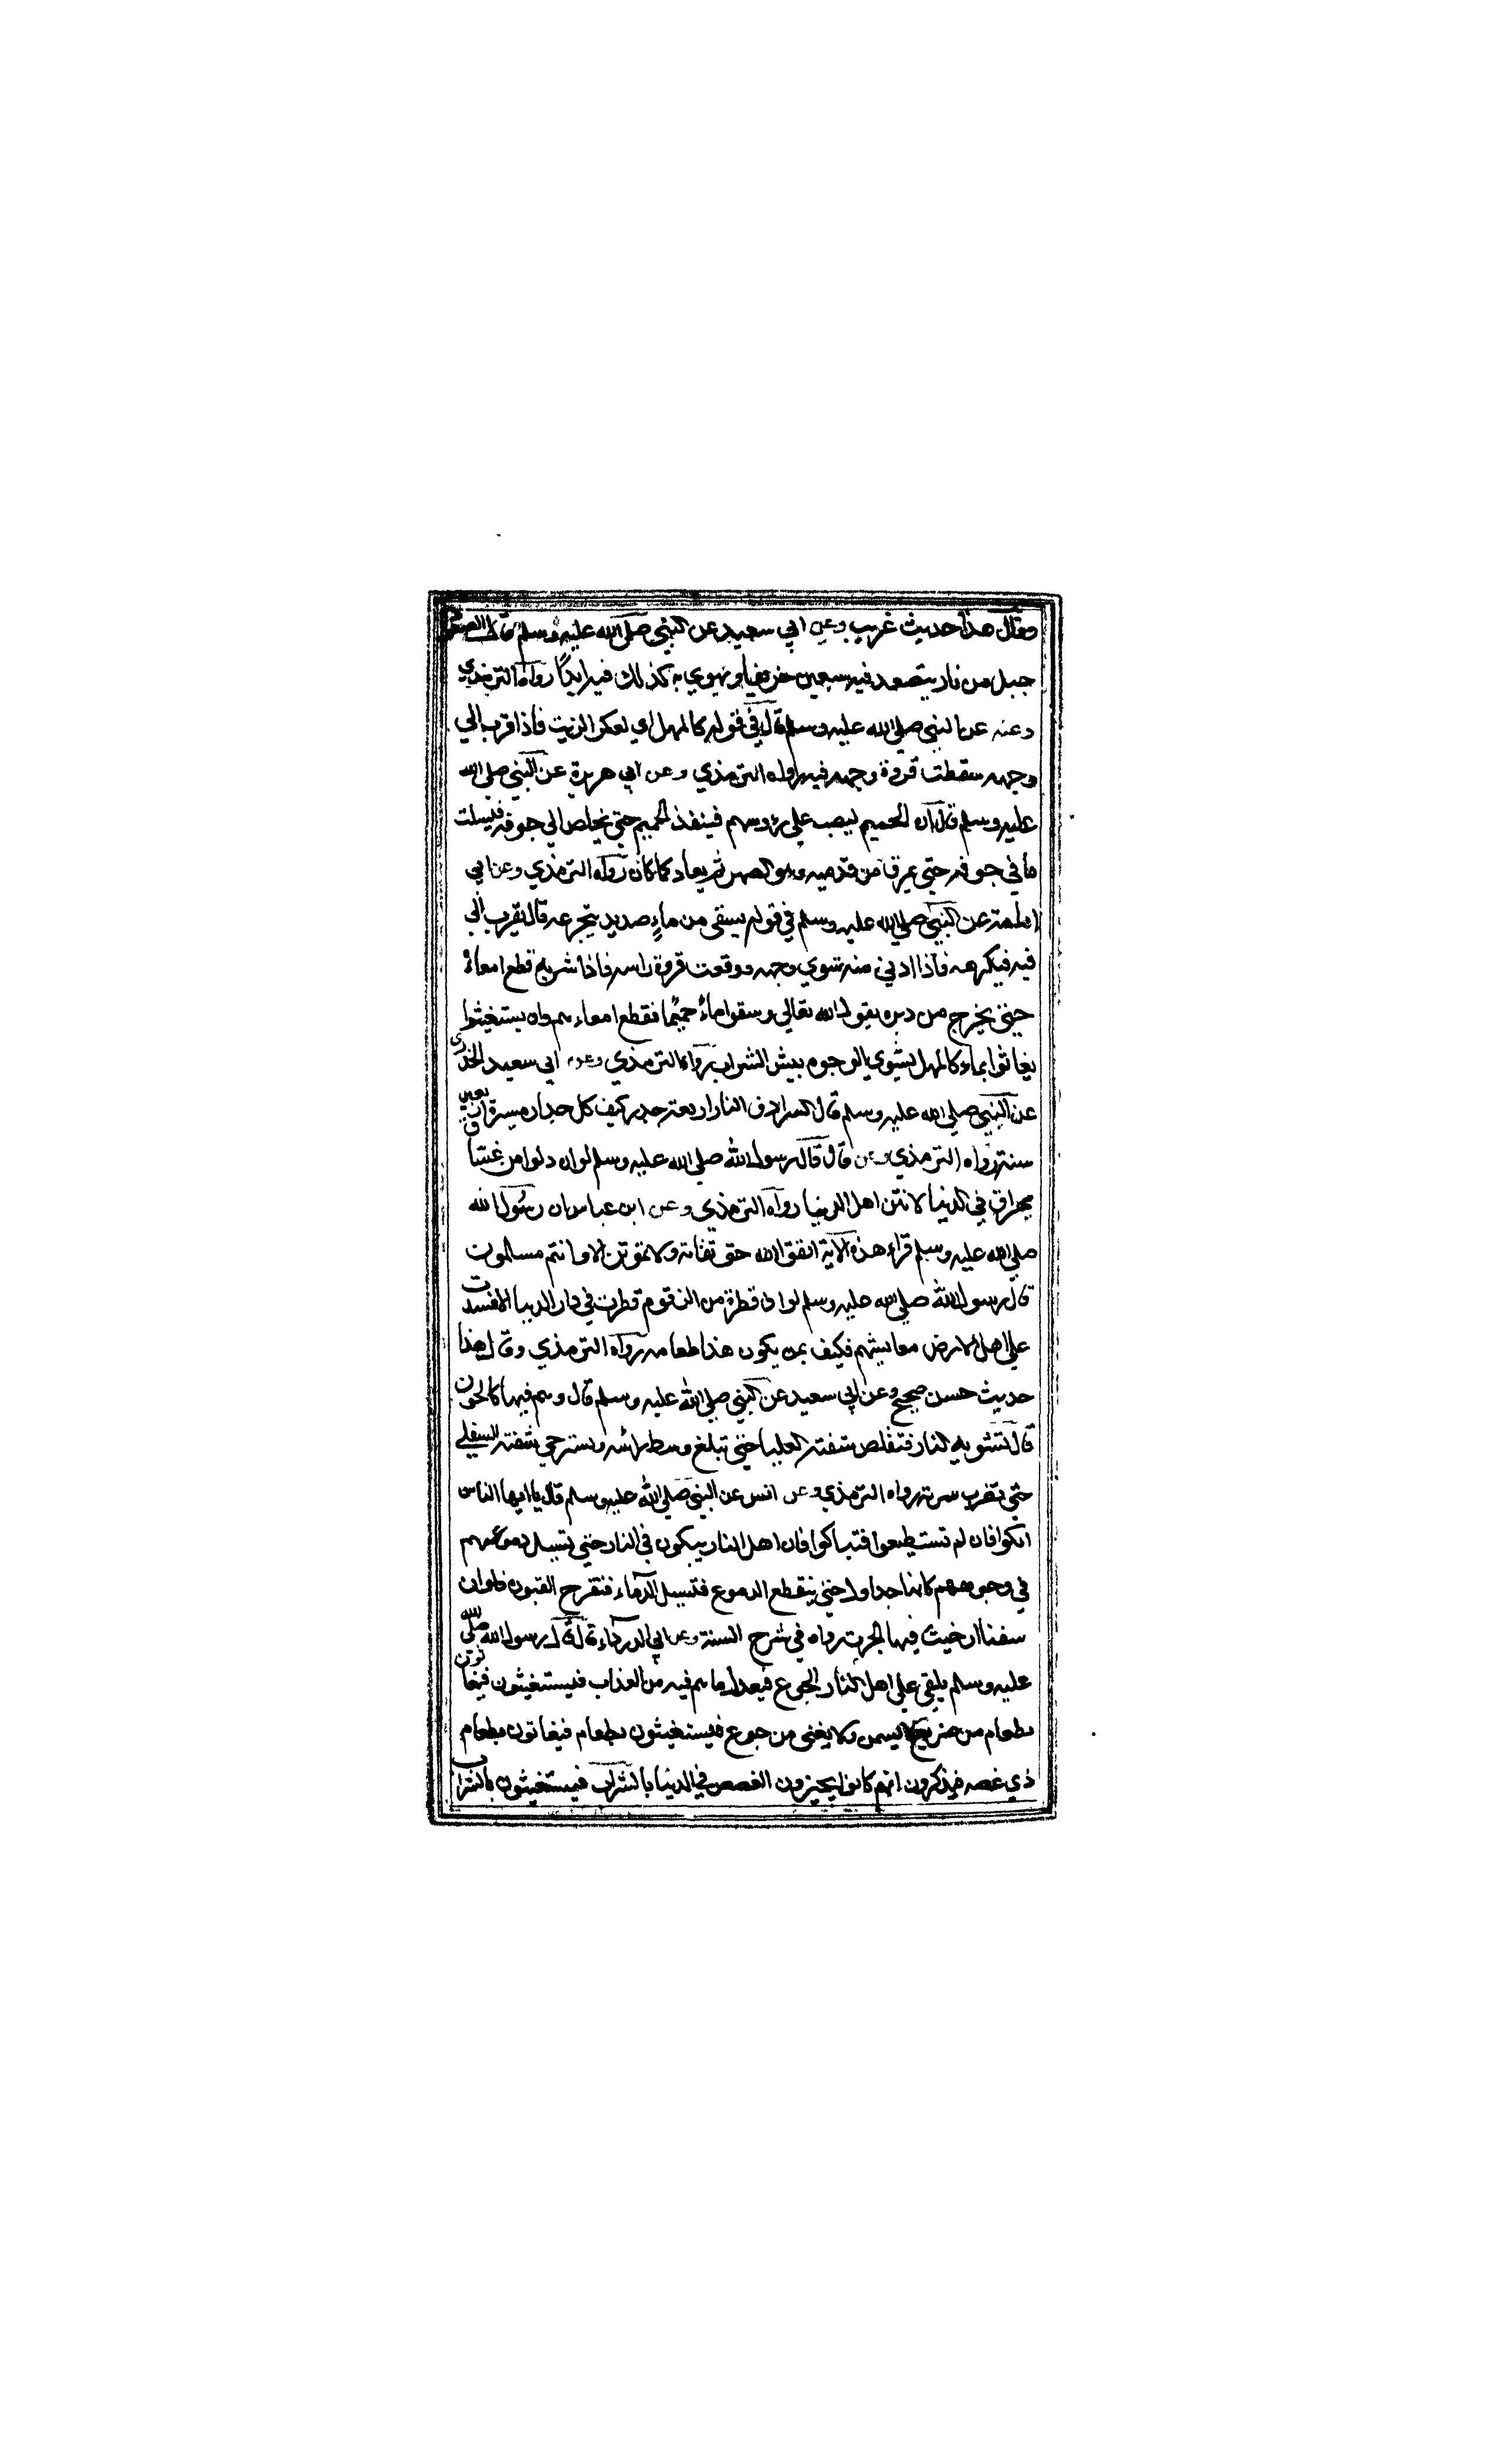 وقال هذا حديث غريب وعن ابي سعيد عن النبي صلى الله عليه وسلم قال الصعود
جبل من نار يتصعد فيه سبعين خريفا ويهوي به كذلك فيه ابدًا رواه الترمذي
وعنه عن النبي صلي الله عليه وسلم قال في قوله كالمهل اي لعكر الزيت فاذا قرب الي
وجهه سقطت فروة وجهه فيه رواه الترمذي وعن ابي هريرة عن النبي صلي الله
عليه وسلم قال ان الحميم ليصب علي رؤوسهم فينفذ الحميم حتي يخلص الي جوفه فيسلت
ما في جوفه حتي يمرق من قدميه وهو الصهر ثم يعاد كما كان رواه الترمذي وعن ابي
امامة عن النبي صلي الله عليه وسلم في قوله يسقي من ماءٍ صديد يتجرعه قال يقرب الي
فيه فيكرهه فاذا ادني منه شوي وجهه ووقعت فروة راسه فاذا شربه قطع امعاءه
حتي يخرج من دبره يقول الله تعالي وسقوا ماءً حميمًا فقطع امعاءهم وان يستغيثوا
يغاثوا بماء كالمهل يشوي الوجوه بيس الشراب رواه الترمذي وعن ابي سعيد الخدري
عن النبي صلي الله عليه وسلم قال السرادق النار اربعة جدر كيف كل جدار مسيرة اربعين
سنة رواه الترمذي وعن قال قال رسول الله صلي الله عليه وسلم لو ان دلوا من غساق
يهراق في الدنيا لانتن اهل الدنيا رواه الترمذي وعن ابن عباس ان رسول الله
صلي الله عليه وسلم قراء هذه الاية اتقوا الله حق تقاته ولا تموتن الا وانتم مسلمون
قال رسول الله صلي الله عليه وسلم لو ان قطرة من الزقوم قطرت في دار الدنيا لافسدت
علي اهل الارض معايشهم فكيف بمن يكون هذا طعامه رواه الترمذي وقال هذا
حديث حسن صحيح وعن ابي سعيد عن النبي صلي الله عليه وسلم قال وهم فيها كالحون
قال تشويه النار فتقلص شفته العليا حتي تبلغ وسط راسه وتسترخي شفته السفلي
حتي تضرب سرته رواه الترمذي وعن انس عن النبي صلي الله عليه وسلم قال يا ايها الناس
ابكوا فان لم تستطيعوا فتباكوا فان اهل النار يبكون في النار حتي تسيل دموعهم
في وجوههم كانها جداول حتي ينقطع الدموع فتسيل الدماء فتقرح العيون فلو ان
سفنا ارخيت فيها لجرت رواه في شرح السنة وعن ابي الدرداء قال قال رسول الله صلي الله
عليه وسلم يلقي علي اهل النار الجوع فيعدل ما هم فيه من العذاب فيستغيثون فيغاثون
بطعام من ضريع لا يسمن ولا يغني من جوع فيستغيثون بطعام فيغاثون بطعام
ذي غصه فيذكرون انهم كانوا يجيزون الغصص في الدنيا بالشراب فيستغيثون بالشراب